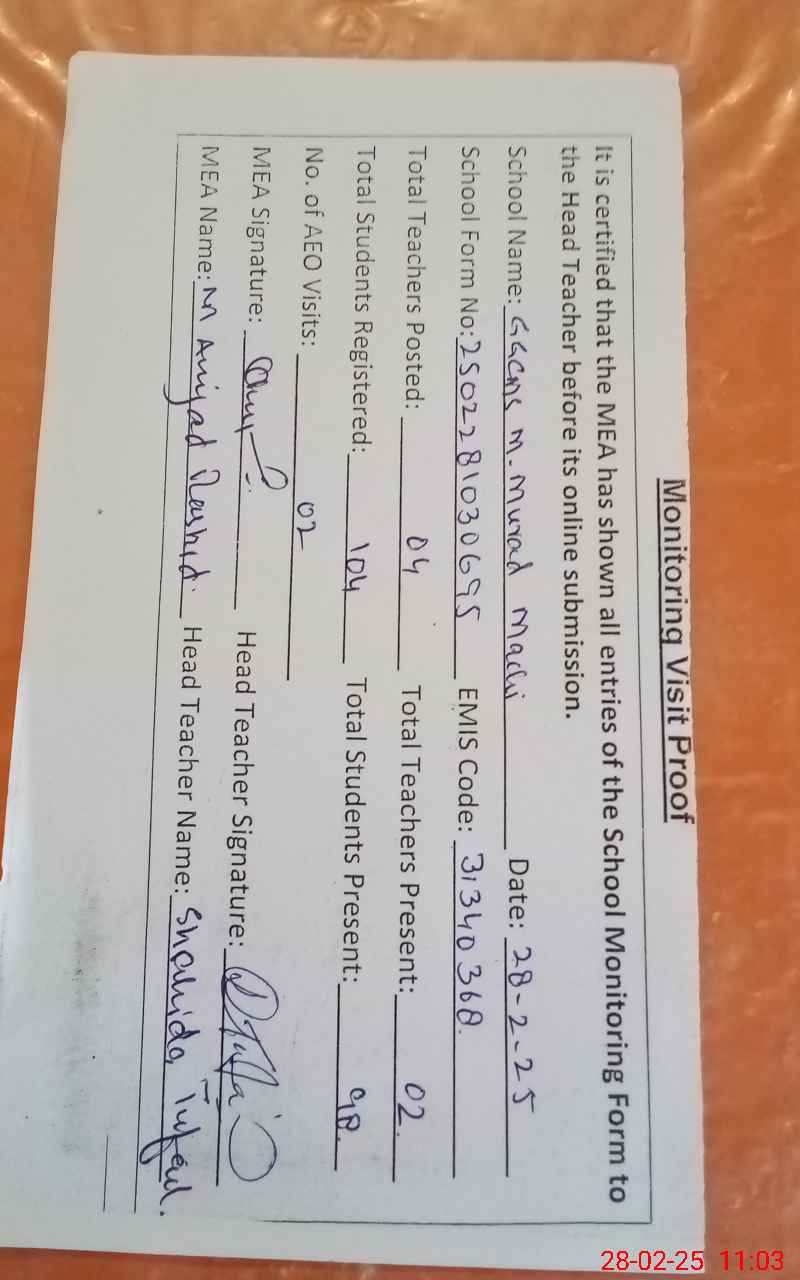 Monitoring Visit Proof
It is certified that the MEA has shown all entries of the School Monitoring Form to
the Head Teacher before its online submission.
School Name: GGCMS M. Murad Machi Date: 28-2-25
School Form No: 2502281030695 EMIS Code: 31340368.
Total Teachers Posted: 04 Total Teachers Present: 02.
Total Students Registered: 104 Total Students Present: 98.
No. of AEO Visits: 02
MEA Signature: Head Teacher Signature:
MEA Name: M Amjad Rashid. Head Teacher Name: Shahida Tufail.
28-02-25 11:03